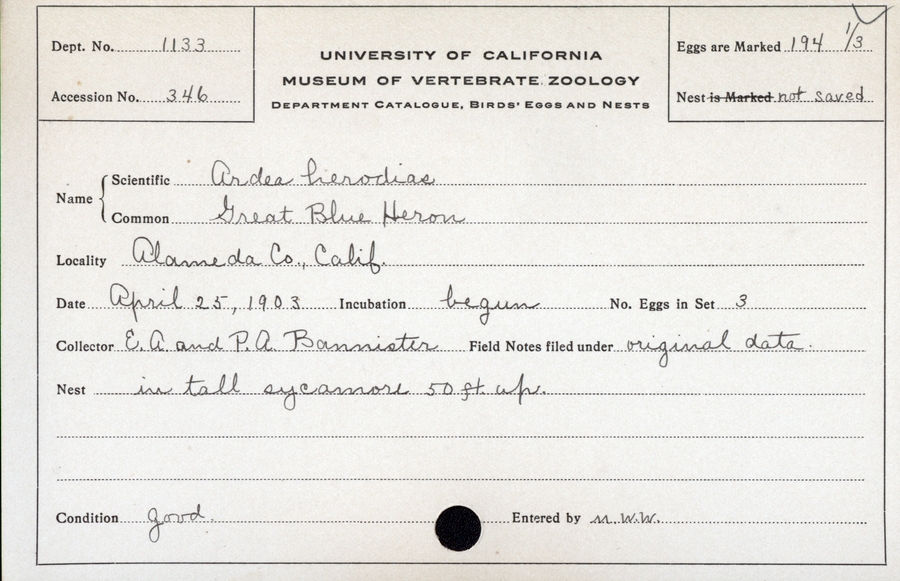 Dept. No. 1133
Accession No. 346
UNIVERSITY OF CALIFORNIA
MUSEUM OF VERTEBRATE ZOOLOGY
DEPARTMENT CATALOGUE, BIRDS' EGGS AND NESTS
Eggs are Marked 194 1/3
Nest is Marked not saved
Name
Scientific Ardea herodias
Common Great Blue Heron
Locality Alameda Co., Calif.
Date April 25, 1903 Incubation begun No. Eggs in Set 3
Collector E.A. and P.A. Bannister Field Notes filed under original data.
Nest in tall sycamore 50 ft. up.
Condition good. Entered by M.W.W.